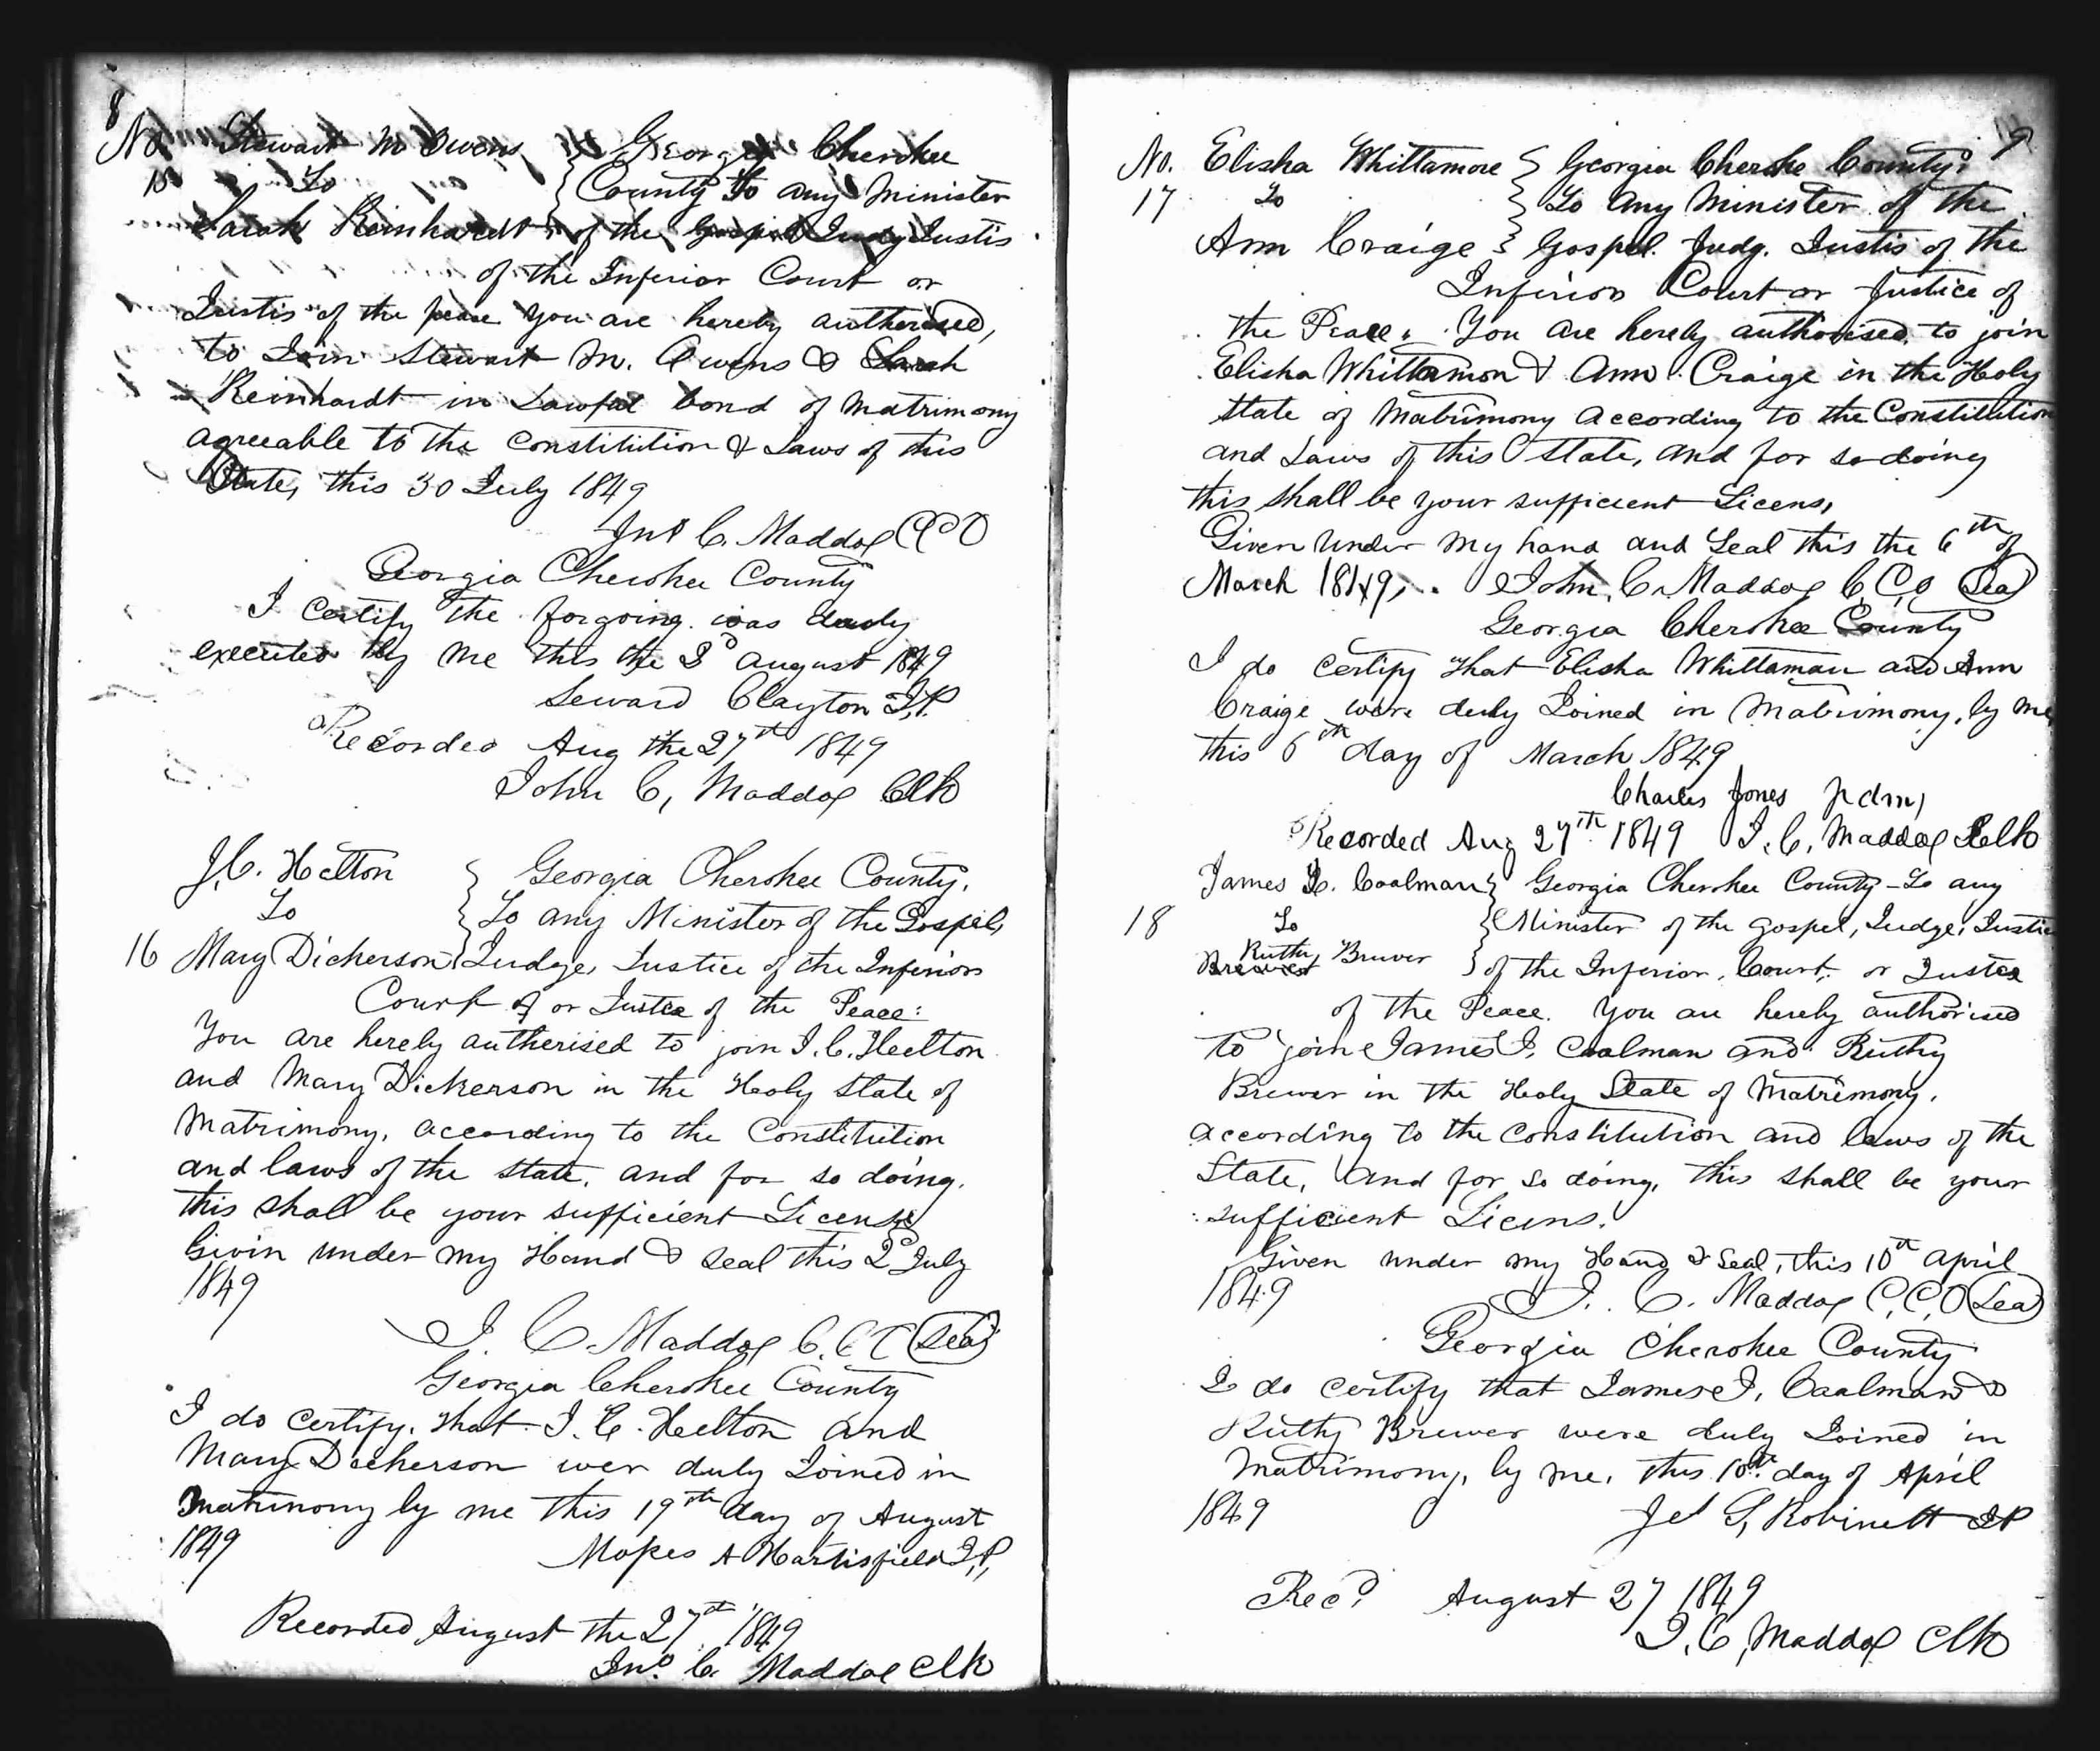 8
No. Stewart M Owens } Georgia Cherokee
15 To } County To any Minister
Sarah Reinhardt } of the Gospel Judg Justis
of the Inferior Court or
Justis of the peace you are hereby autherised,
to Join Stewart M. Owens & Sarah
Reinhardt in Lawful bond of Matrimony
agreeable to the Constitution & Laws of this
State, this 30 July 1849
Jno C. Maddox CCO
Georgia Cherokee County
I Certify the forgoing was duly
executed by me this the 3d August 1849
Seward Clayton J,P.
Recorded Aug the 27th 1849
John C, Maddox Clk
J,C. Helton } Georgia Cherokee County.
To } To any Minister of the Gospel,
16 Mary Dickerson } Judge, Justice of the Inferior
Court of or Justce of the Peace:
You are hereby autherised to join J. C. Heelton
and Mary Dickerson in the Holy State of
Matrimony, according to the Constitution
and laws of the state, and for so doing,
this shall be your sufficient License
Givin under my Hand & seal this 2d July
1849
J. C. Maddox C. C C Seal
Georgia Cherokee County
I do certify, that J. C. Heelton and
Mary Dickerson wer duly Joined in
Matrimony by me this 19th day of August
1849
Moses A Hartisfield J,P,
Recorded August the 27th 1849
Jno. C. Maddox Clk
9
No. Elisha Whittamore } Georgia Cheroke County:
17 To } To Any Minister of the
Ann Craige } Gospel. Judg. Justis of the
Inferior Court or Justice of
the Peace. You are hereby authorised to join
Elisha Whittamon & Ann Craige in the Holy
state of Matrimony according to the Constitution
and Laws of this State, and for so doing
this shall be your sufficient Licens,
Given under my hand and Seal this the 6th of
March 1849, John, C. Maddox C, C,O, Seal
Georgia Cherokee County
I do certify that Elisha Whittaman and Ann
Craige were duly Joined in Matrimony, by me,
this 6th day of March 1849
Charles Jones
Recorded Aug 27th 1849 J. C, Maddox Clk
James J. Coalman } Georgia Cherokee County - To any
18 To } Minister of the Gospel, Judge, Justice
Brewer Ruthy Brewer } of the Inferior, Court, or Justce
of the Peace. You are hereby authorised
to join James J, Coalman and Ruthy
Brewer in the Holy State of Matrimony,
according to the Constitution and laws of the
State, and for so doing, this shall be your
sufficient Licens.
Given under my Hand & Seal, this 10th April
1849 J. C. Maddox C, C, O Seal
Georgia Cherokee County
I do certify that James J, Coalman &
Ruthy Brewer were duly Joined in
Matrimony, by me, this 10th day of April
1849 G, Robinett JP
Recd August 27 1849
J, C, Maddox Clk